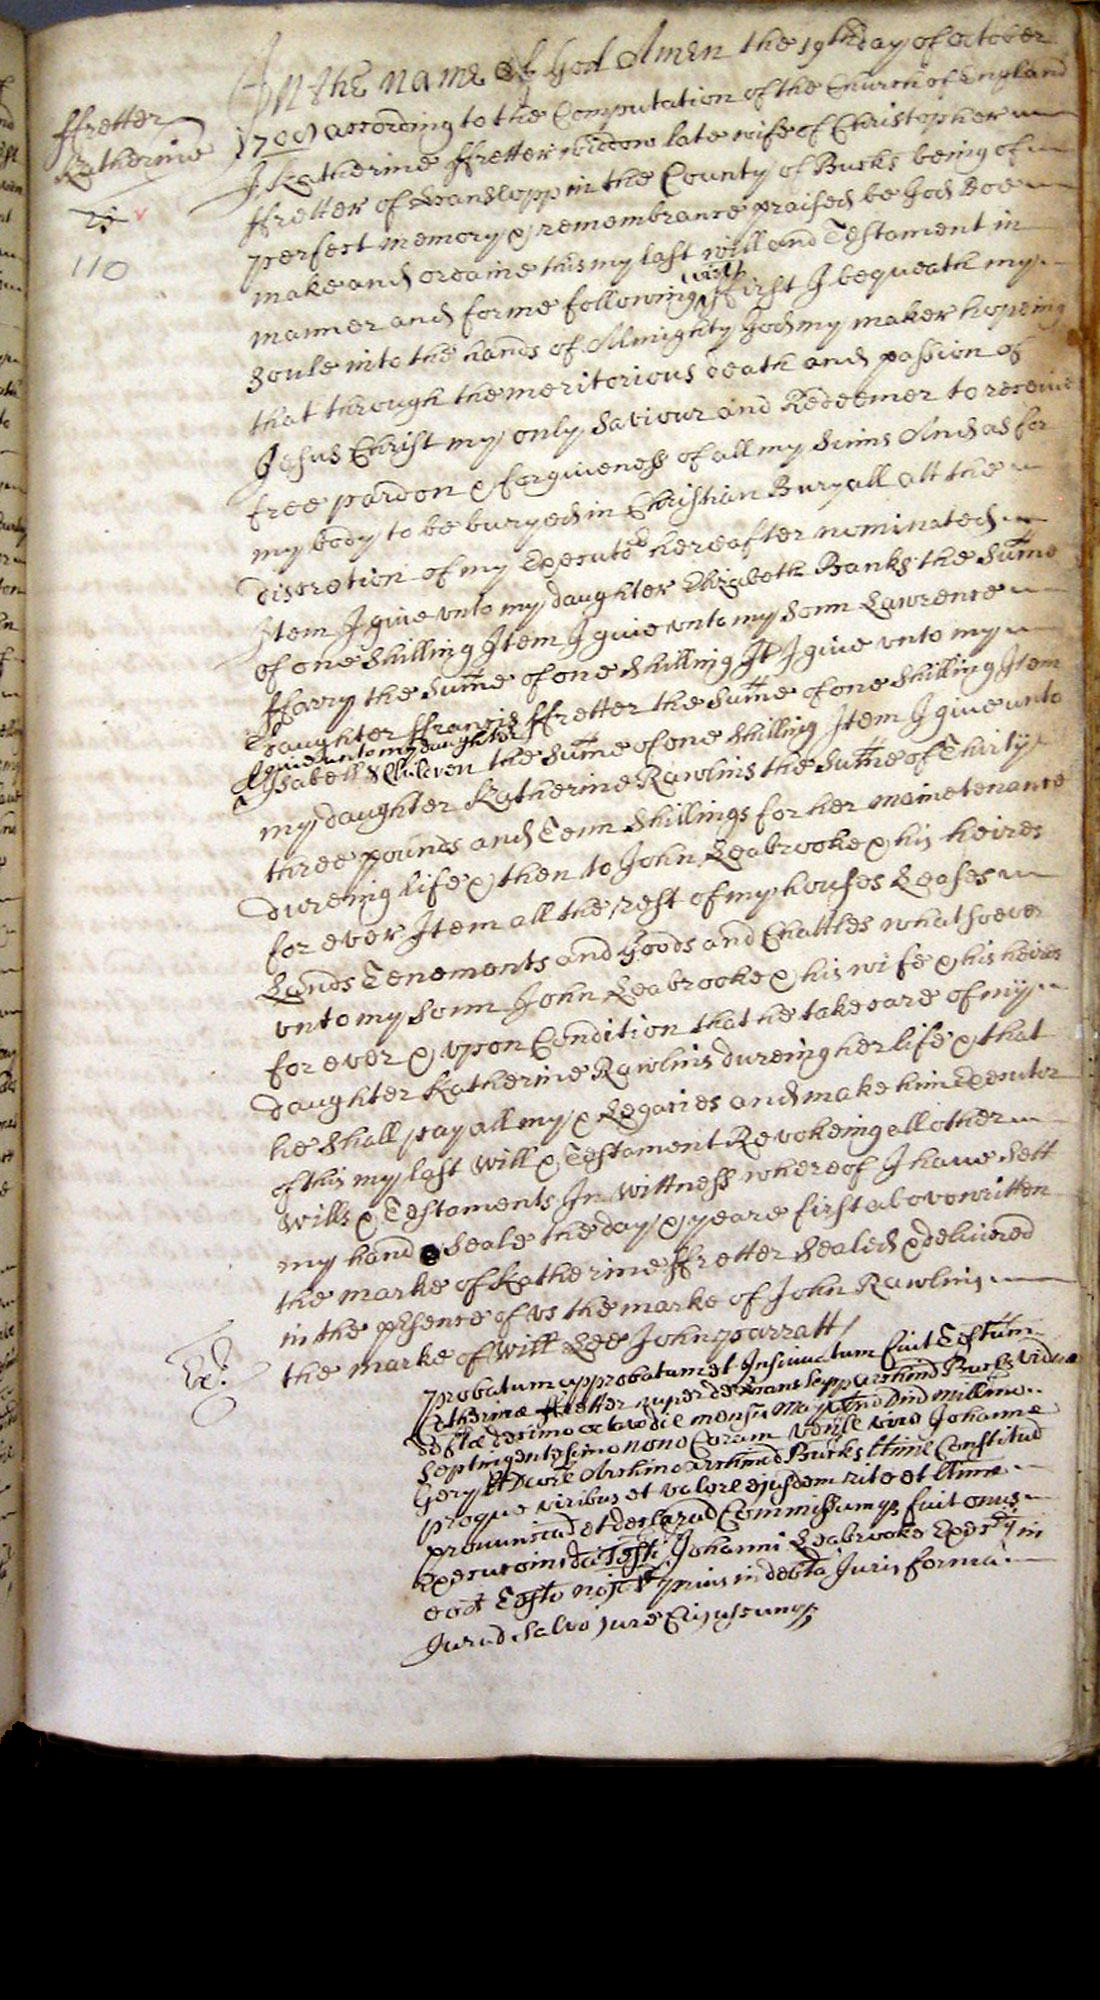 ffretter
Katherine
110
In the name of God Amen the 19th day of october
according to the Computation of the Church of England
I Katherine ffretter widdow late wife of Christopher
ffretter of Hanslopp in the County of Bucks being of
perfect memory & remembrance praised be God Doe
make and ordaine this my last will and Testament in
manner and forme following (vizt) first I bequeath my
Soule into the hands of Almighty God my maker hopeing
that through the meritorious death and passion of
Jesus Christ my only Saviour and Redeemer to receive
free pardon & forgiveness of all my Sinns And as for
my body to be buryed in Christian Buryall att the
discretion of my Executor hereafter nominated
Item I give unto my daughter Elizabeth Banks the Sume
of one Shilling Item I give unto my Sonn Lawrence
ffarry the Sume of one Shilling It I give unto my
Daughter ffrancis ffretter the Sume of one Shilling Item
I give unto my daughter
Isabell the Sume of one Shilling Item I give unto
my daughter Katherine Rawlins the Sume of Thirty
three pounds and Tenn Shillings for her mainetenance
dureing life & then to John Seabrooke & his heires
for ever Item all the rest of my houses Leases
Lands Tenements and Goods and Chattles whatsoever
unto my Sonn John Seabrooke & his wife & his heires
for ever & upon Condition that he take care of my
daughter Katherine Rawlins dureing her life & that
he Shall pay all my Legacies and make him Executor
of this my last Will & Testament Revokeing all other
Wills & Testaments In Wittness whereof I have Sett
my hand & Seale the day & yeare first above written
the marke of Katherine ffretter Sealed & delivered
in the psence of us the marke of John Rawlins
the marke of Will Lee John parratt
Probatum approbatum et Insinuatum fuit Testum
Catherinæ ffretter nuper de Hanslepp Archind Bucks vidua
defctæ decimo octavo die mensis Maij Ano Dni millimo
Septingentesimo nono Coram venle viro Johanne
Gery Archino Archind Bucks ltime Constitut
proque viribus et valore ejusdem rite et ltime
pronunciat et declarad Commissumq fuit onus
Johanni Seabrooke in
eod Testo prius in debta Juris forma
Jurad Salvo jure Cujuscunq